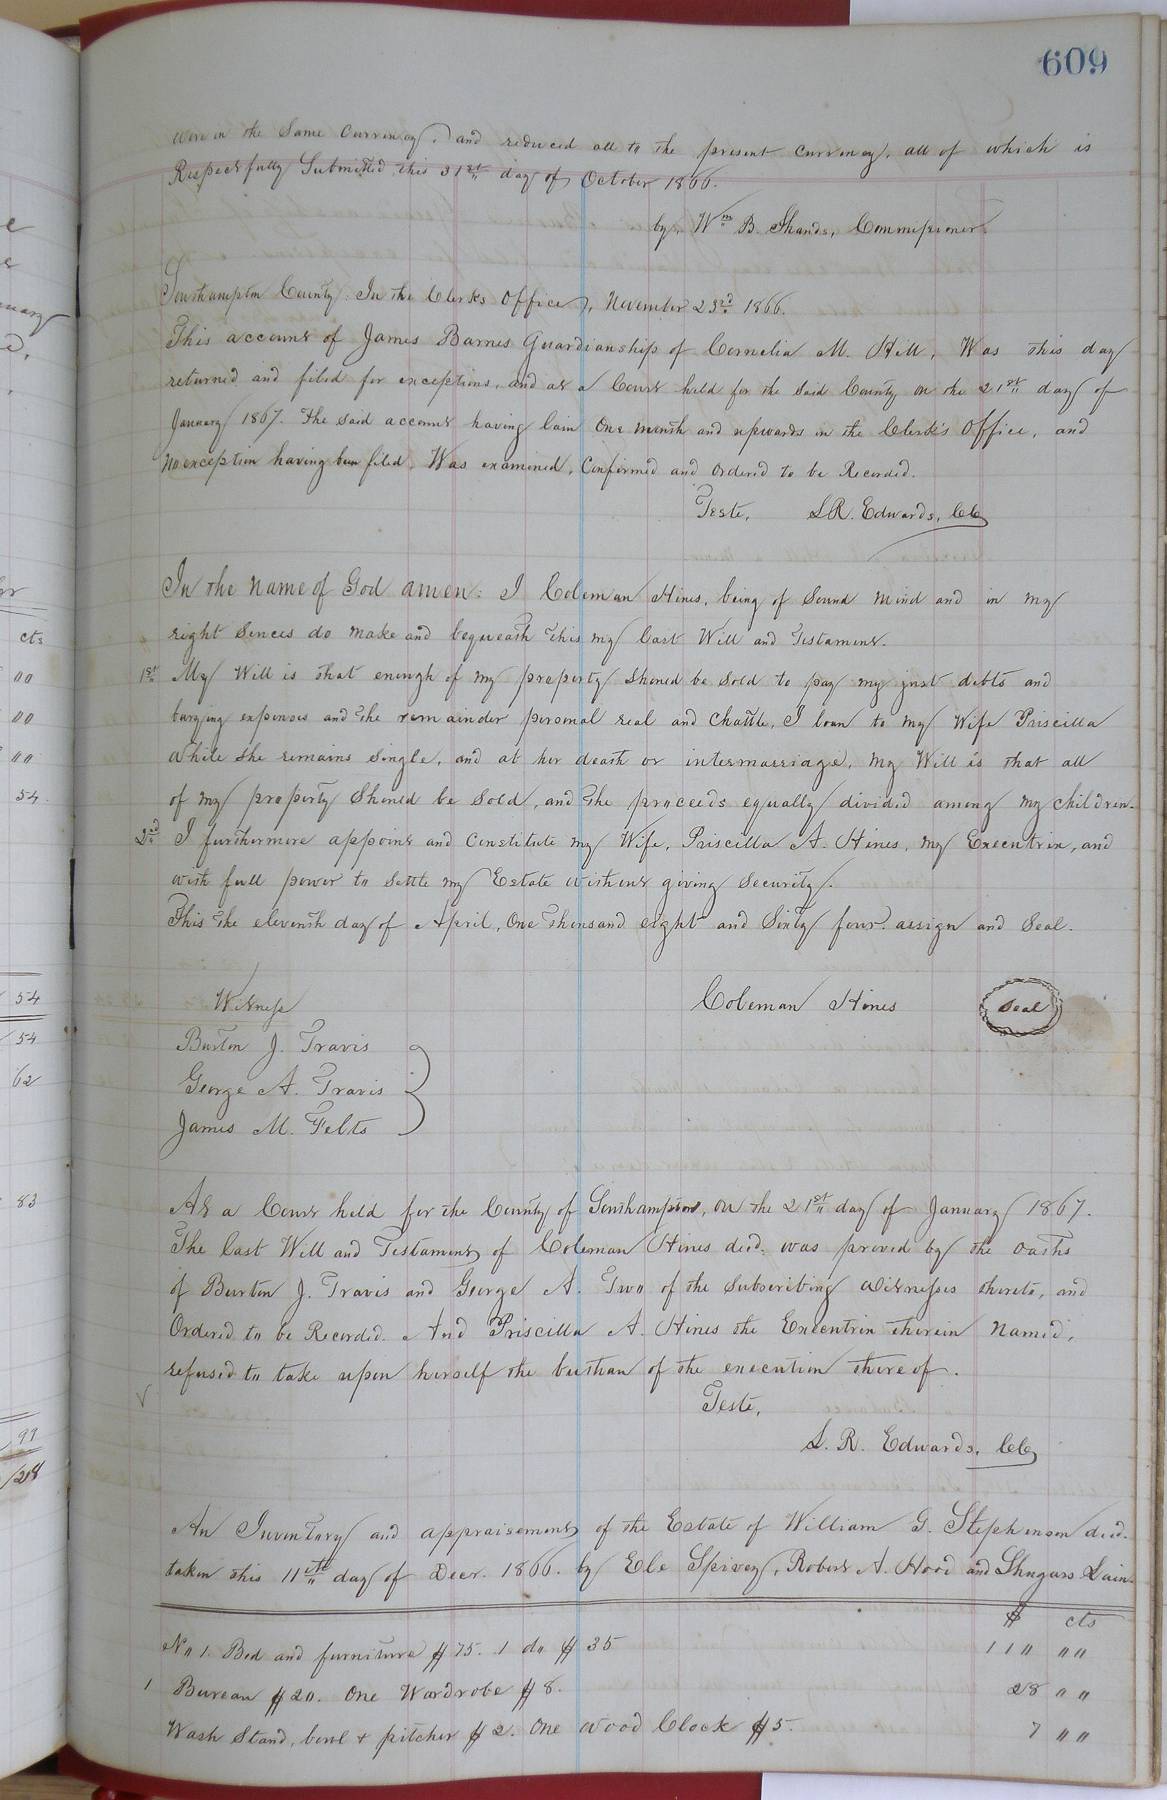 609
were in the Same Currency, and reduced all to the present currency, all of which is
Respectfully Submitted this 31st day of October 1866.
by, Wm B. Shands, Commissioner.
Southampton County. In the Clerks Office, November 23rd 1866.
This account of James Barnes Guardianship of Cornelia M. Hill, Was this day
returned and filed for exceptions, and at a Court held for the said County on the 21st day of
January 1867. The said account having lain One month and upwards in the Clerk's Office, and
No exception having been filed, Was examined, Confirmed and Ordered to be Recorded.
Teste, L.R. Edwards, CC
In the name of God amen: I Coleman Hines, being of Sound Mind and in my
right Sences do make and bequeath this my Last Will and Testament.
1st My Will is that enough of my property Should be Sold to pay my just debts and
burying expenses and the remainder personal real and Chattle, I loan to my Wife Priscilla
while She remains Single, and at her death or intermarriage, my Will is that all
of my property Should be Sold, and the proceeds equally divided among my children.
2nd I furthermore appoint and Constitute my Wife, Priscilla A. Hines, my Executrix, and
with full power to Settle my Estate without giving Security.
This the eleventh day of April, One Thousand eight and Sixty four. assign and Seal.
Witness
Coleman Hines Seal
Burton J. Travis
George A. Travis
James M. Felts
At a Court held for the County of Southampton, on the 21st day of January 1867.
The Last Will and Testament of Coleman Hines decd. was proved by the oaths
of Burton J. Travis and George A. Two of the Subscribing witnesses thereto, and
Ordered to be Recorded. And Priscilla A. Hines the Executrix therein Named,
refused to take upon herself the burthan of the execution thereof.
Teste,
L. R. Edwards, CC
An Inventory and appraisement of the Estate of William G. Stephenson decd.
taken this 11th day of Decr. 1866. by Ele Spivey, Robert A. Hood and Shugars Lain.
$ cts
No 1. Bed and furniture $75. 1 do $35 110 00
1 Bureau $20. One Wardrobe $8. 28 00
Wash Stand, bowl & pitcher $2. One Wood Clock $5. 7 00
cts
00
00
00
54
54
54
62
83
97